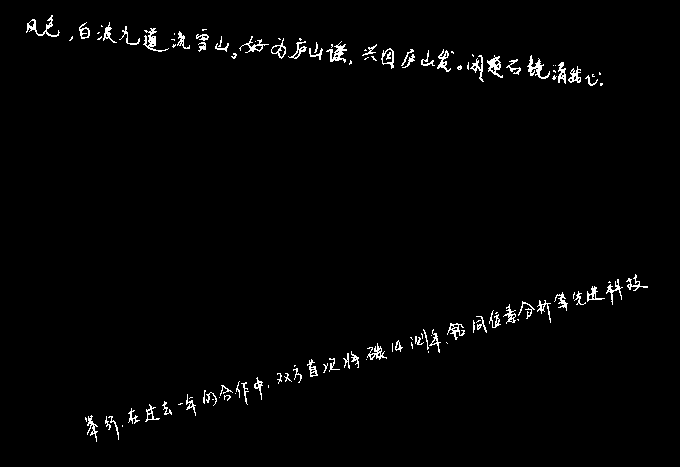 风色，白波九道流雪山。好为庐山谣，兴因庐山发。闲窥石镜清我心，
举行.在过去一年的合作中,双方首次将碳14测年、铅同位素分析等先进科技